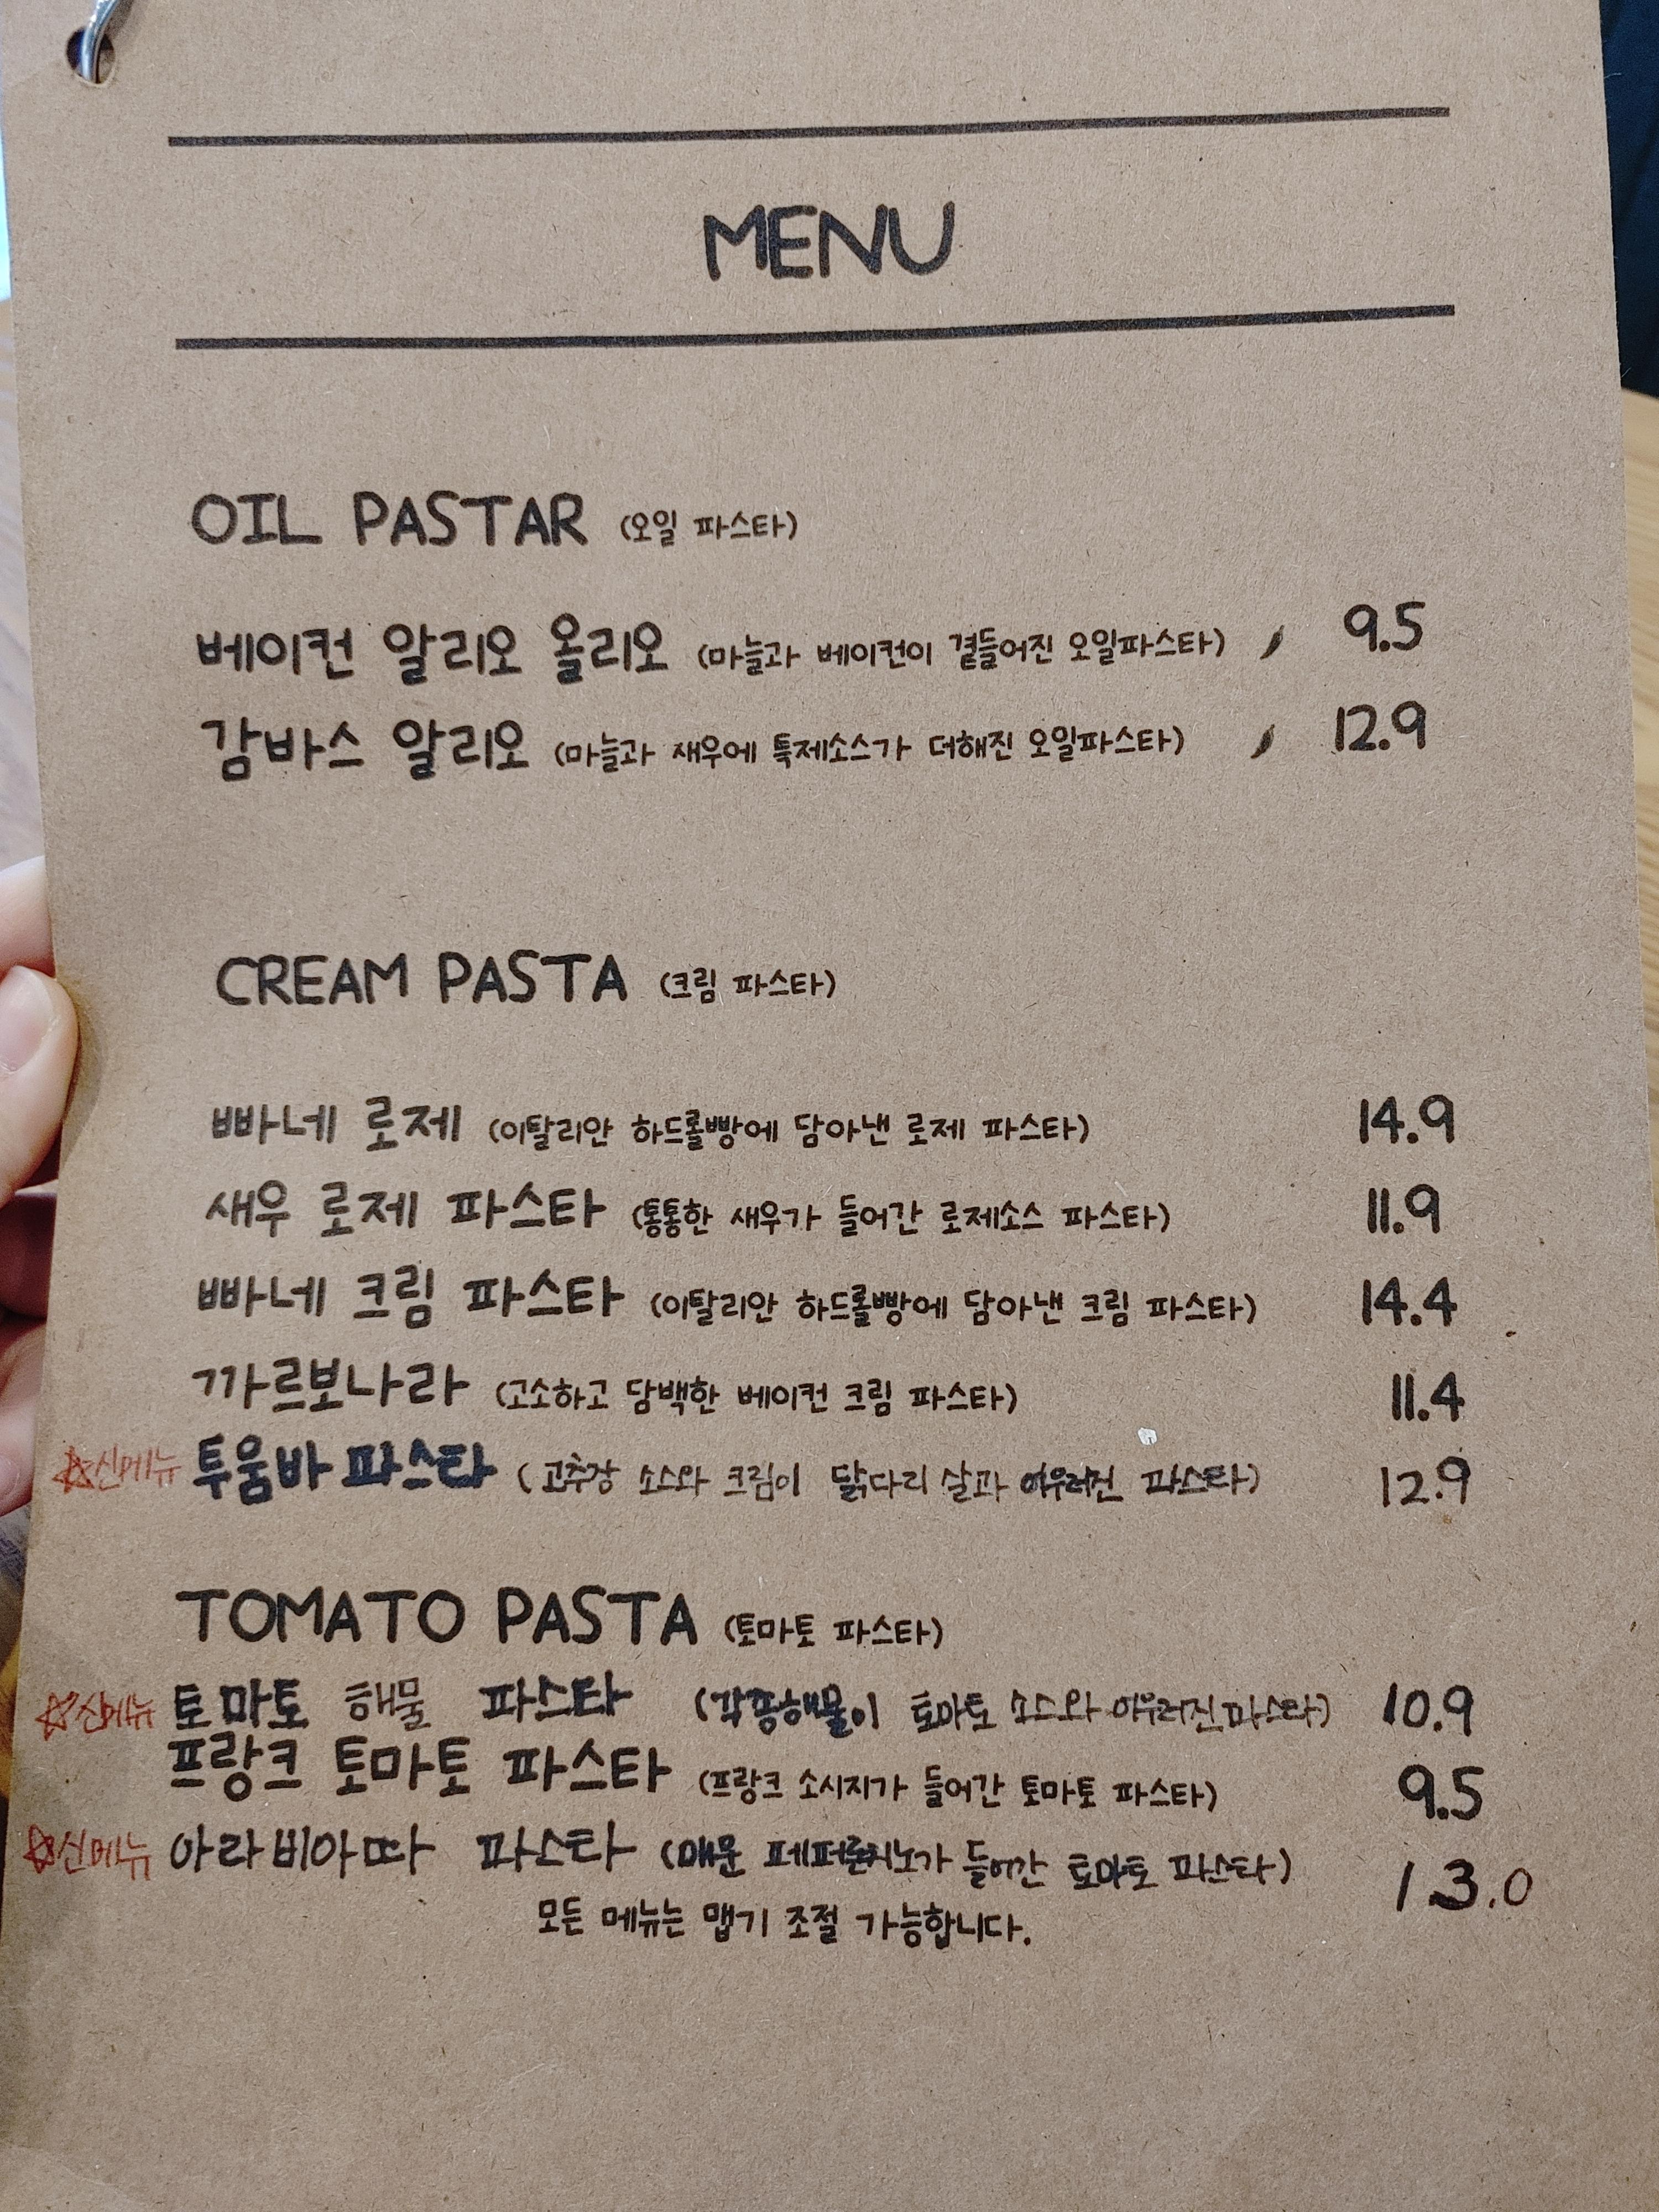 MENU
OIL PASTAR (오일 파스타)
베이컨 알리오 올리오 (마늘과 베이컨이 곁들어진 오일파스타) 9.5
감바스 알리오 (마늘과 새우에 특제소스가 더해진 오일파스타) 12.9
CREAM PASTA (크림 파스타)
빠네 로제 (이탈리안 하드롤빵에 담아낸 로제 파스타) 14.9
새우 로제 파스타 (통통한 새우가 들어간 로제소스 파스타) 11.9
빠네 크림 파스타 (이탈리안 하드롤빵에 담아낸 크림 파스타) 14.4
까르보나라 (고소하고 담백한 베이컨 크림 파스타) 11.4
☆신메뉴 투움바 파스타 (고추장 소스와 크림이 닭다리 살과 어우러진 파스타) 12.9
TOMATO PASTA (토마토 파스타)
☆신메뉴 토마토 해물 파스타 (각종해물이 토마토 소스와 어우러진 파스타) 10.9
프랑크 토마토 파스타 (프랑크 소시지가 들어간 토마토 파스타) 9.5
☆신메뉴 아라비아따 파스타 (매운 페퍼론치노가 들어간 토마토 파스타) 13.0
모든 메뉴는 맵기 조절 가능합니다.